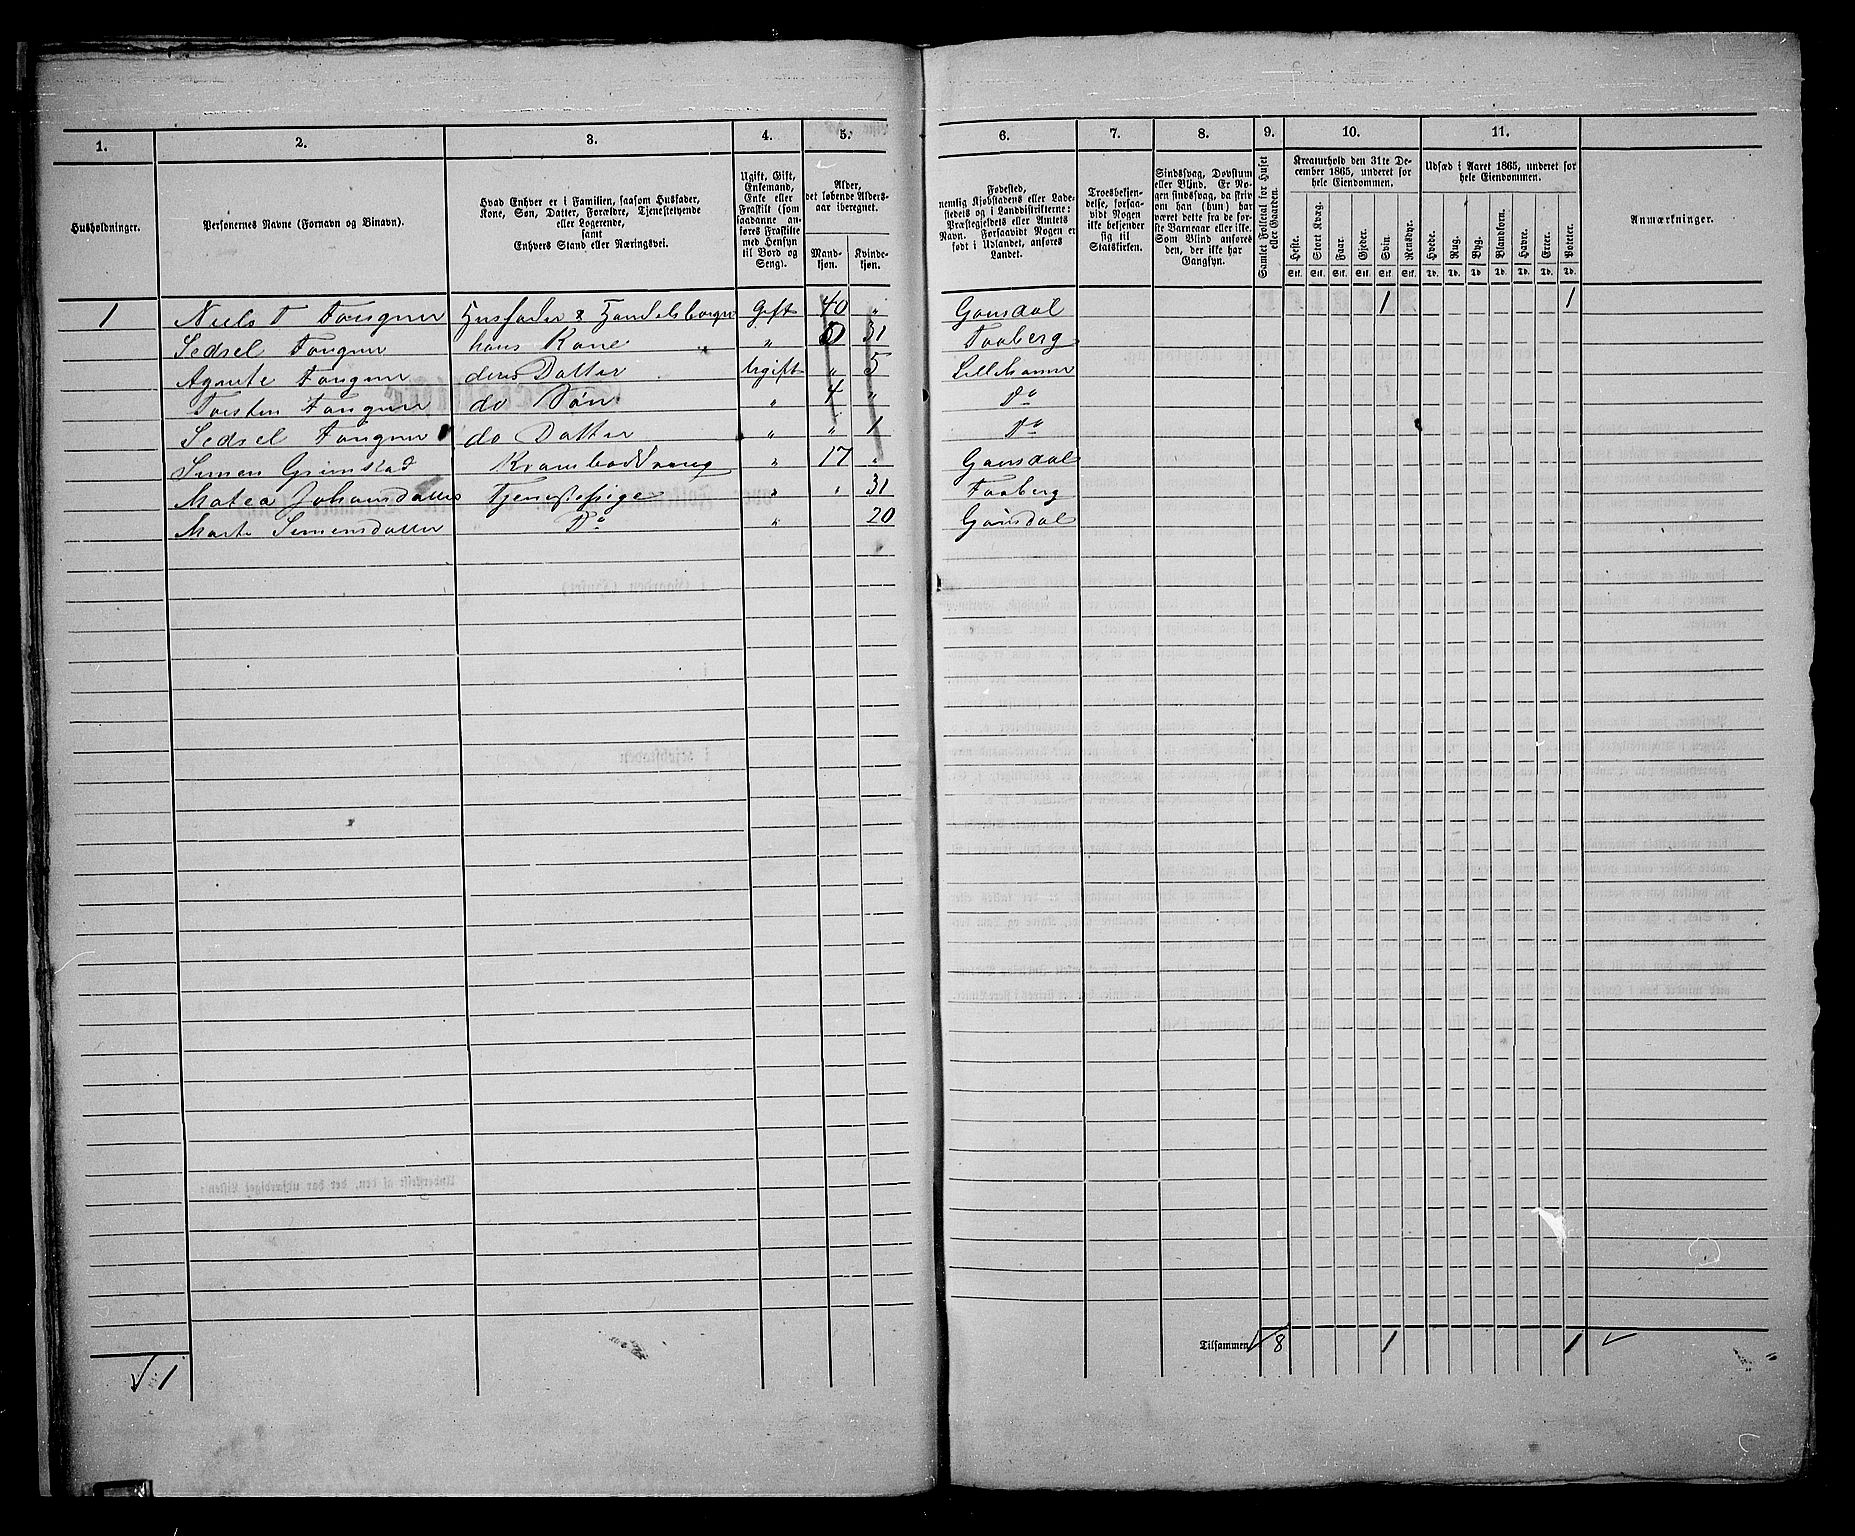 1. 2. 3. 4. 5. 6. 7. 8. 9. 10. 11.
Husholdninger.
Personernes Navne (Fornavn og Binavn).
Hvad Enhver er i Familien, saasom Husfader,
Kone, Søn, Datter, Forældre, Tjenestetyende
eller Logerende,
samt
Enhvers Stand eller Næringsvei.
Ugift, Gift,
Enkemand,
Enke eller
Fraskilt (som
saadanne an-
føres Fraskilte
med Hensyn
til Bord og
Seng).
Alder,
det løbende Alders-
aar iberegnet.
Mand-
kjøn.
Kvinde-
kjøn.
Fødested,
nemlig Kjøbstadens eller Lade-
stedets og i Landdistrikterne:
Præstegjeldets eller Amtets
Navn. Forsaavidt Nogen er
født i Udlandet, anføres
Landet.
Troesbekjen-
delse, forsaa-
vidt Nogen
ikke bekjender
sig til
Statskirken.
Sindssvag, Døvstum
eller Blind. Er No-
gen sindssvag, da skriv
om han (hun) har
været dette fra de før-
ste Barneaar eller ikke.
Som Blind anføres
den, der ikke har
Gangsyn.
Samlet Folketal for Huset
eller Gaarden.
Kreaturhold den 31te De-
cember 1865, underet for
hele Eiendommen.
Heste. Stort Kvæg. Faar. Gjeder. Svin. Rensdyr.
Stk. Stk. Stk. Stk. Stk. Stk.
Udsæd i Aaret 1865, underet for
hele Eiendommen.
Hvede. Rug. Byg. Blandkorn. Havre. Erter. Poteter.
Td. Td. Td. Td. Td. Td. Td.
Anmærkninger.
1 Niels T Fougner Husfader & Handelsborger Gift 40 " Gausdal 1 1
Sedsel Fougner hans Kone " 0 31 Faaberg
Agnete Fougner deres Datter Ugift " 5 Lillehamer
Torsten Fougner do Søn " 4 " Do
Sedsel Fougner do Datter " " 1 Do
Simen Grimstad Krambod " 17 " Gausdal
Matea Johansdatter Tjenestepige " " 31 Faaberg
Marte Simensdatter Do " 20 Gausdal
Tilsammen 8 1 1
1